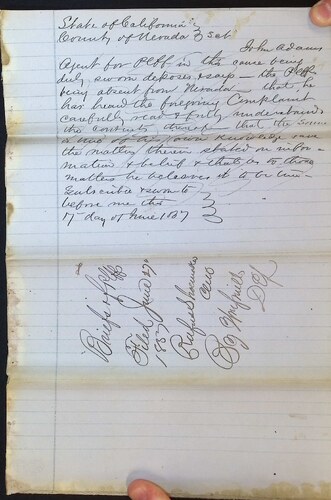 State of California }
County of Nevada } Sct
John Adams
Agent for Plff in the cause being
duly sworn deposes & says – the Plff
being absent from Nevada – that he
has heard the foregoing Complaint
carefully read & fully understands
the contents thereof – that the same
is true of his own knowledge save
the matters therein stated on infor-
mation & belief & that as to those
matters he believes it to be true
Subscribed & sworn to
before me this
17 day of June 187
Filed June
1857
Rufus
Clerk
By
Dy